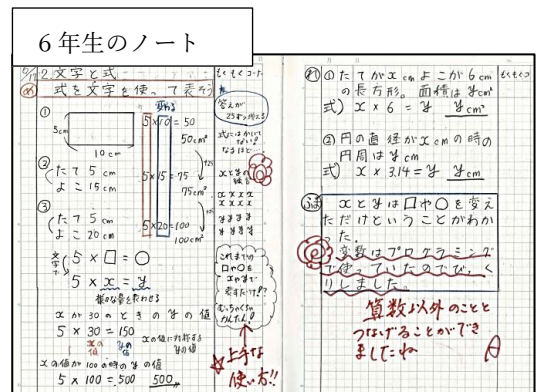 6年生のノート
2.文字と式
式を文字を使って表そう
変わる
①
5cm
10cm
5×10=50
50cm²
② たて 5cm
よこ 15cm
5×15=75
75cm²
③ たて 5cm
よこ 20cm
5×20=100
100cm²
5×□=○
5×x=y
xが30のときのyの値
5×30=150
xの値
yの値
xの値に対応する
yの値
xの値が100の時のyの値
5×100=500 500
答えが
25ずつ増える
+25
+25
式には
ない?
なるほど…
xとyの
練習
x x x x
x x x x
y y y y
y y y y
これまでの
□や○を
xやyで
表すだけ!?
むっちゃくちゃ
かんたん!
上手な
使い方!!
① たてがxcmよこが6cm
の長方形。面積はycm²
式) x×6=y ycm²
② 円の直径がxcmの時の
円周はycm
式) x×3.14=y ycm
xとyは□や○を変え
ただけということがわか
った。
変数はプログラミング
で使っていたのでびっく
りしました。
算数以外のことと
つなげることができ
ましたね